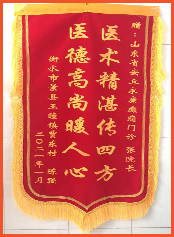 赠：山东省安丘永康癫痫门诊 张院长
医术精湛传四方
医德高尚暖人心
衡水市景县王瞳镇黄乐村 陈
二〇二一年一月